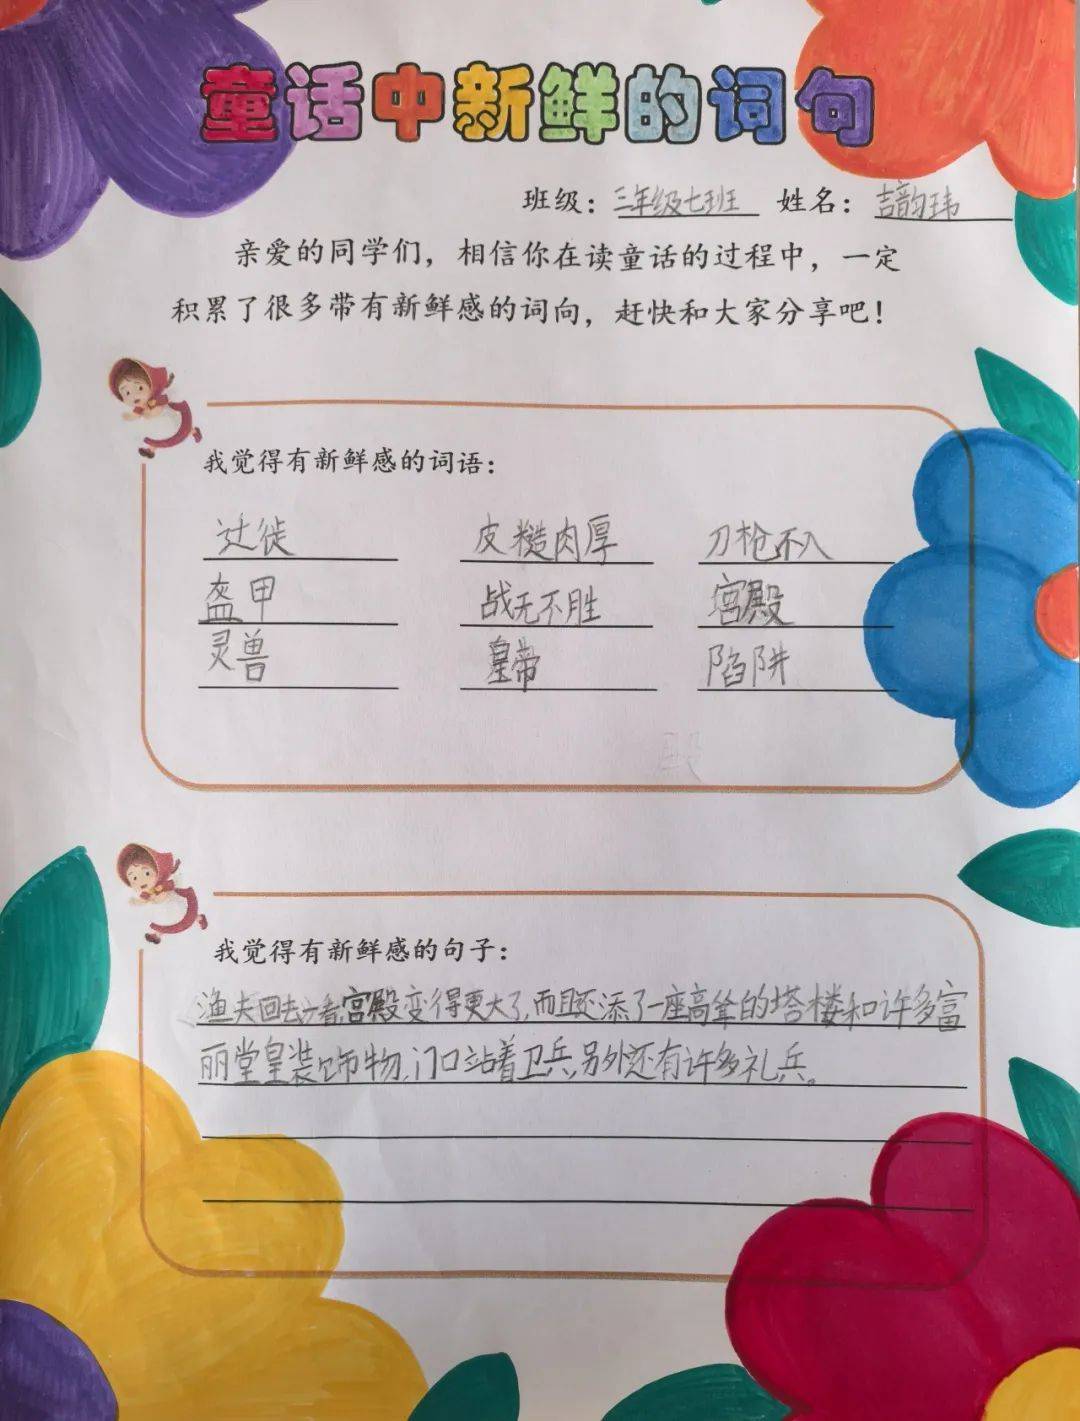 童话中新鲜的词句
班级：三年级七班 姓名：吉韵玮
亲爱的同学们，相信你在读童话的过程中，一定
积累了很多带有新鲜感的词向，赶快和大家分享吧！
我觉得有新鲜感的词语：
迁徙 皮糙肉厚 刀枪不入
盔甲 战无不胜 宫殿
灵兽 皇帝 陷阱
我觉得有新鲜感的句子：
渔夫回去一看，宫殿变得更大了，而且还添了一座高耸的塔楼和许多富
丽堂皇装饰物，门口站着卫兵，另外还有许多礼兵。